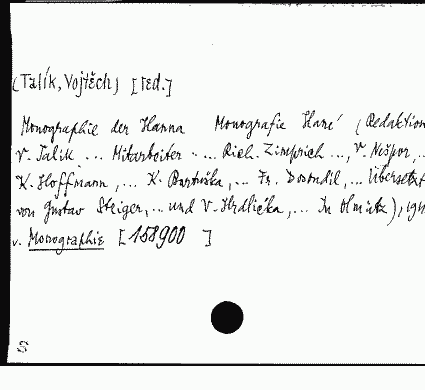 (Talík, Vojtěch) [red.]
Monographie der Hanna Monografie Hané (Redaktion
V. Talik ... Mitarbeiter ... Rich. Zimprich ..., V. Nešpor, ..
K. Hoffmann, ... K. Bartuška, ... Fr. Dostidil, ... Übersetzt
von Gustav Steiger, ... und V. Hrdlička, ... In Olmütz),
v. Monographie [158900 ]